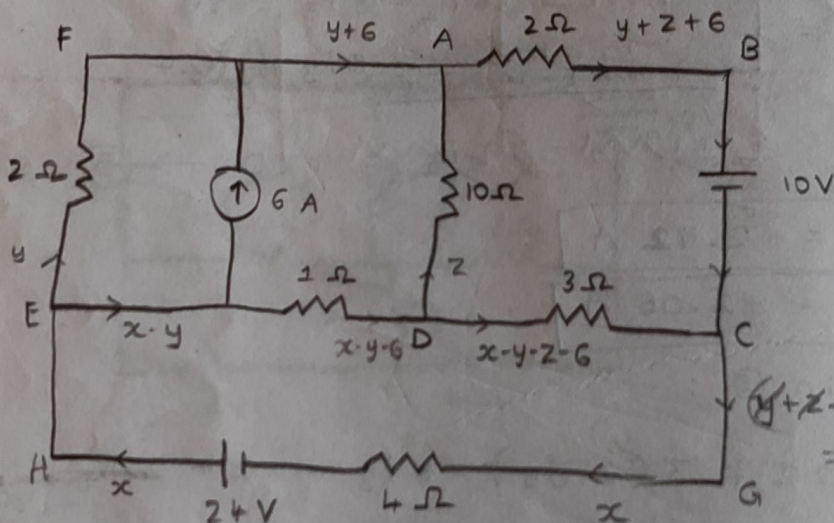 F
y+6
A
2 Ω
y+z+6
B
2 Ω
6 A
10 Ω
10V
y
1 Ω
z
3 Ω
E
x-y
x-y-6
D
x-y-z-6
C
H
x
24 V
4 Ω
x
G